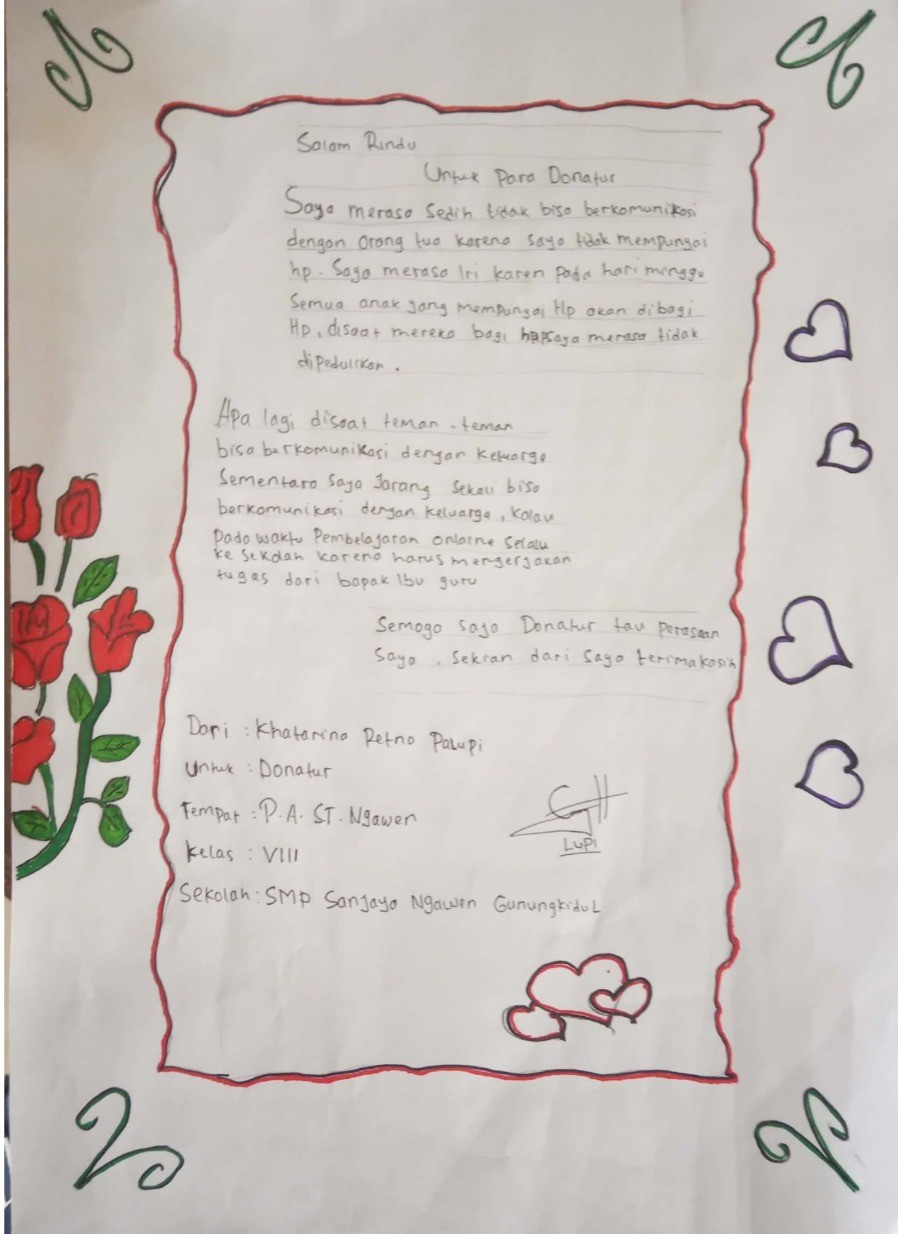 Salam Rindu
Untuk Para Donatur
Saya merasa sedih tidak bisa berkomunikasi
dengan orang tua karena saya tidak mempunyai
hp. Saya merasa Iri karen pada hari minggu
Semua anak yang mempunyai Hp akan dibagi
Hp, disaat mereka bagi saya merasa tidak
dipedulikan.
Apa lagi disaat teman-teman
bisa berkomunikasi dengan keluarga
Sementara Saya Jarang Sekali bisa
berkomunikasi dengan keluarga, kalau
pada waktu Pembelajaran onlaine Selalu
ke Sekolah karena harus mengerjakan
tugas dari bapak Ibu guru
Semoga saja Donatur tau Perasaan
Saya, Sekian dari Saya terimakasih
Dari : Khatarina Retno Palupi
Untuk : Donatur
Tempat : P.A. ST. Ngawen
Kelas : VIII
LUPI
Sekolah : SMP Sanjaya Ngawen Gunungkidul